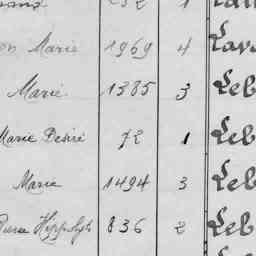 Marie 1969 4
Marie 1385 3 Leb
Marie Desiré 72 1 Leb
Marie 1494 3 Leb
Pierre Hippolyte 836 2 Leb